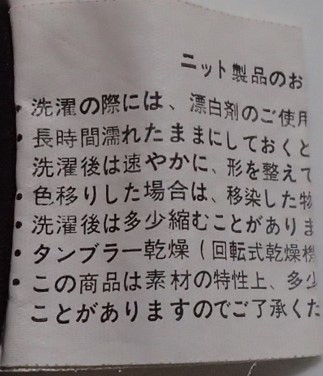 ニット製品のお
・洗濯の際には、漂白剤のご使用
・長時間濡れたままにしておくと
洗濯後は速やかに、形を整えて
・色移りした場合は、移染した物
・洗濯後は多少縮むことがありま
・タンブラー乾燥(回転式乾燥機
・この商品は素材の特性上、多少
ことがありますのでご了承くた